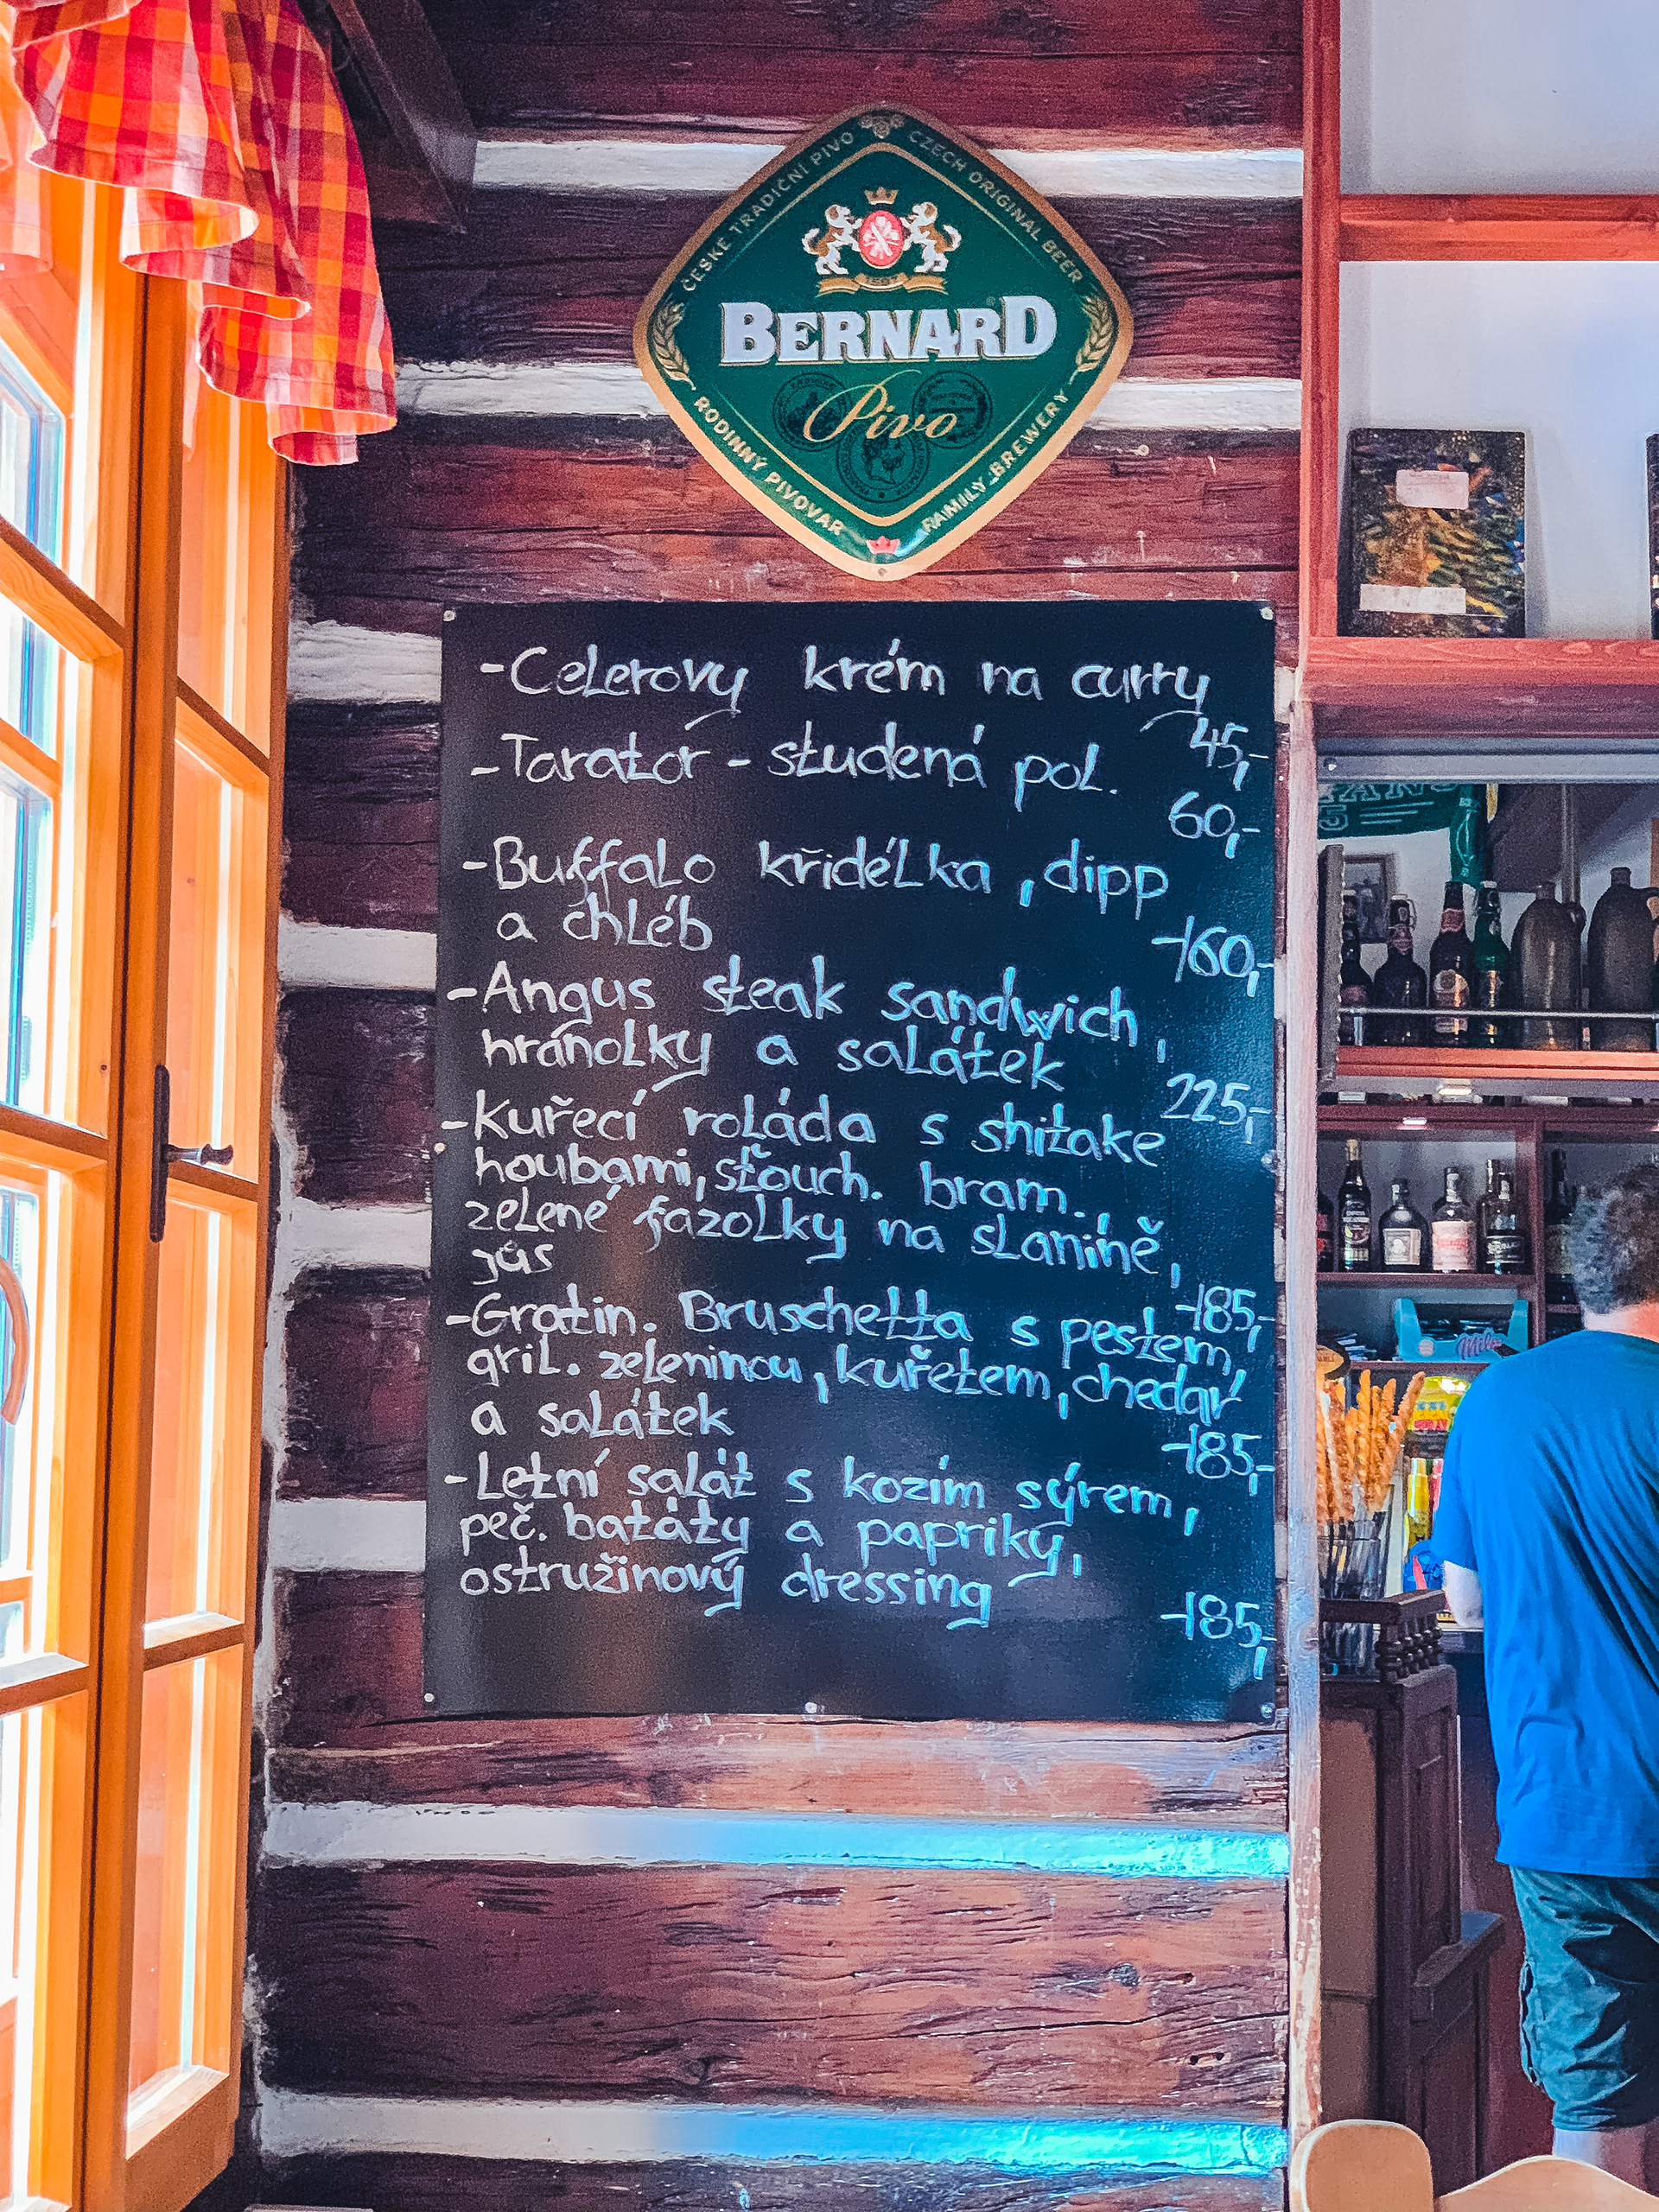 ČESKÉ TRADIČNÍ PIVO
CZECH ORIGINAL BEER
BERNARD
Pivo
RODINNÝ PIVOVAR
FAMILY BREWERY
-Celerovy krém na curry
45,-
-Tarator - studená pol.
60,-
-Buffalo křidélka, dipp
a chléb
160,-
-Angus steak sandwich,
hránolky a salátek
225,-
-Kuřecí roláda s shitake
houbami, šťouch. bram.,
zelené fazolky na slanině,
jůs
185,-
-Gratin. Bruschetta s pestem,
gril. zeleninou, kuřetem, chedar
a salátek
185,-
-Letní salát s kozím sýrem,
peč. batáty a papriky,
ostružinový dressing
185,-